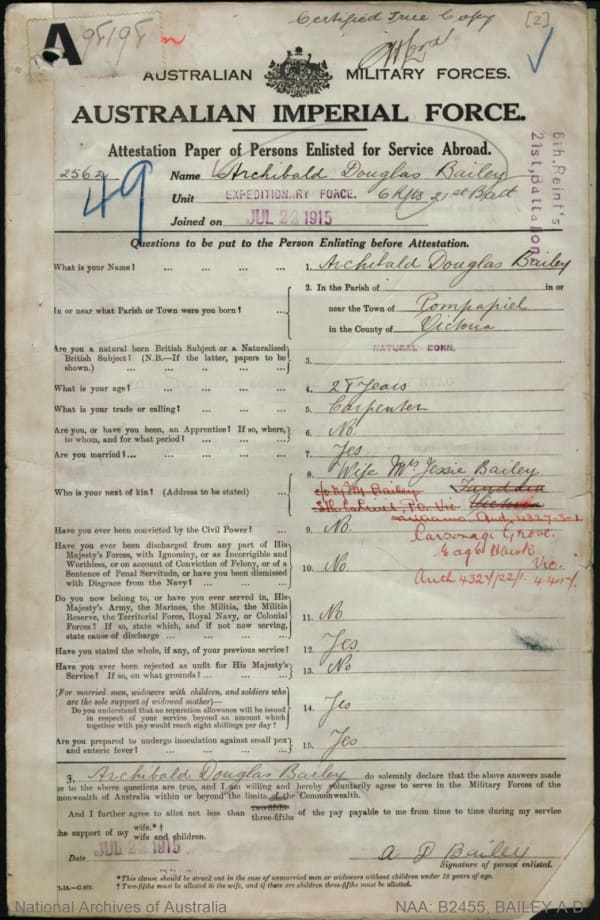 Certified True Copy [2]
A 98198
AUSTRALIAN MILITARY FORCES.
AUSTRALIAN IMPERIAL FORCE.
Attestation Paper of Persons Enlisted for Service Abroad.
2562 Name Archibald Douglas Bailey
49 Unit EXPEDITIONARY FORCE. 6 Rfts 21st Batt
Joined on JUL 22 1915
6th. Reint's
21st. Battalion
Questions to be put to the Person Enlisting before Attestation.
What is your Name? ... ... ... ... 1. Archibald Douglas Bailey
2. In the Parish of in or
In or near what Parish or Town were you born? ... near the Town of Pompapiel
in the County of Victoria
Are you a natural born British Subject or a Naturalized
British Subject? (N.B.—If the latter, papers to be
shown.) ... ... ... ... ... 3. NATURAL BORN.
What is your age? ... ... ... ... 4. 28 Years
What is your trade or calling? ... ... ... 5. Carpenter
Are you, or have you been, an Apprentice? If so, where,
to whom, and for what period? ... ... ... 6. No
Are you married? ... ... ... ... ... 7. Yes
8. Wife Mrs Jessie Bailey
Who is your next of kin? (Address to be stated) ... c/o M. Bailey
P.O. Vic.
Auth 4327-3-1.
Have you ever been convicted by the Civil Power? ... 9. No. Parsonage Grove.
Eaglehawk
Vic.
Auth 4324/22/1. 4.4.17.
Have you ever been discharged from any part of His
Majesty's Forces, with Ignominy, or as Incorrigible and
Worthless, or on account of Conviction of Felony, or of a
Sentence of Penal Servitude, or have you been dismissed
with Disgrace from the Navy? ... ... ... 10. No.
Do you now belong to, or have you ever served in, His
Majesty's Army, the Marines, the Militia, the Militia
Reserve, the Territorial Force, Royal Navy, or Colonial
Forces? If so, state which, and if not now serving,
state cause of discharge ... ... ... ... 11. No
Have you stated the whole, if any, of your previous service? 12. Yes
Have you ever been rejected as unfit for His Majesty's
Service? If so, on what grounds? ... ... ... 13. No
(For married men, widowers with children, and soldiers who
are the sole support of widowed mother)—
Do you understand that no separation allowance will be issued
in respect of your service beyond an amount which
together with pay would reach eight shillings per day? ... 14. Yes
Are you prepared to undergo inoculation against small pox
and enteric fever? ... ... ... ... ... 15. Yes
3. Archibald Douglas Bailey do solemnly declare that the above answers made
to the above questions are true, and I am willing and hereby voluntarily agree to serve in the Military Forces of the
Commonwealth of Australia within or beyond the limits of the Commonwealth.
And I further agree to allot not less than two-fifths three-fifths of the pay payable to me from time to time during my service
the support of my wife.*† wife and children.
Date JUL 22 1915 A D Bailey
Signature of person enlisted.
*This clause should be struck out in the case of unmarried men or widowers without children under 18 years of age.
†Two-fifths must be allotted to the wife, and if there are children three-fifths must be allotted.
National Archives of Australia NAA: B2455, BAILEY A D